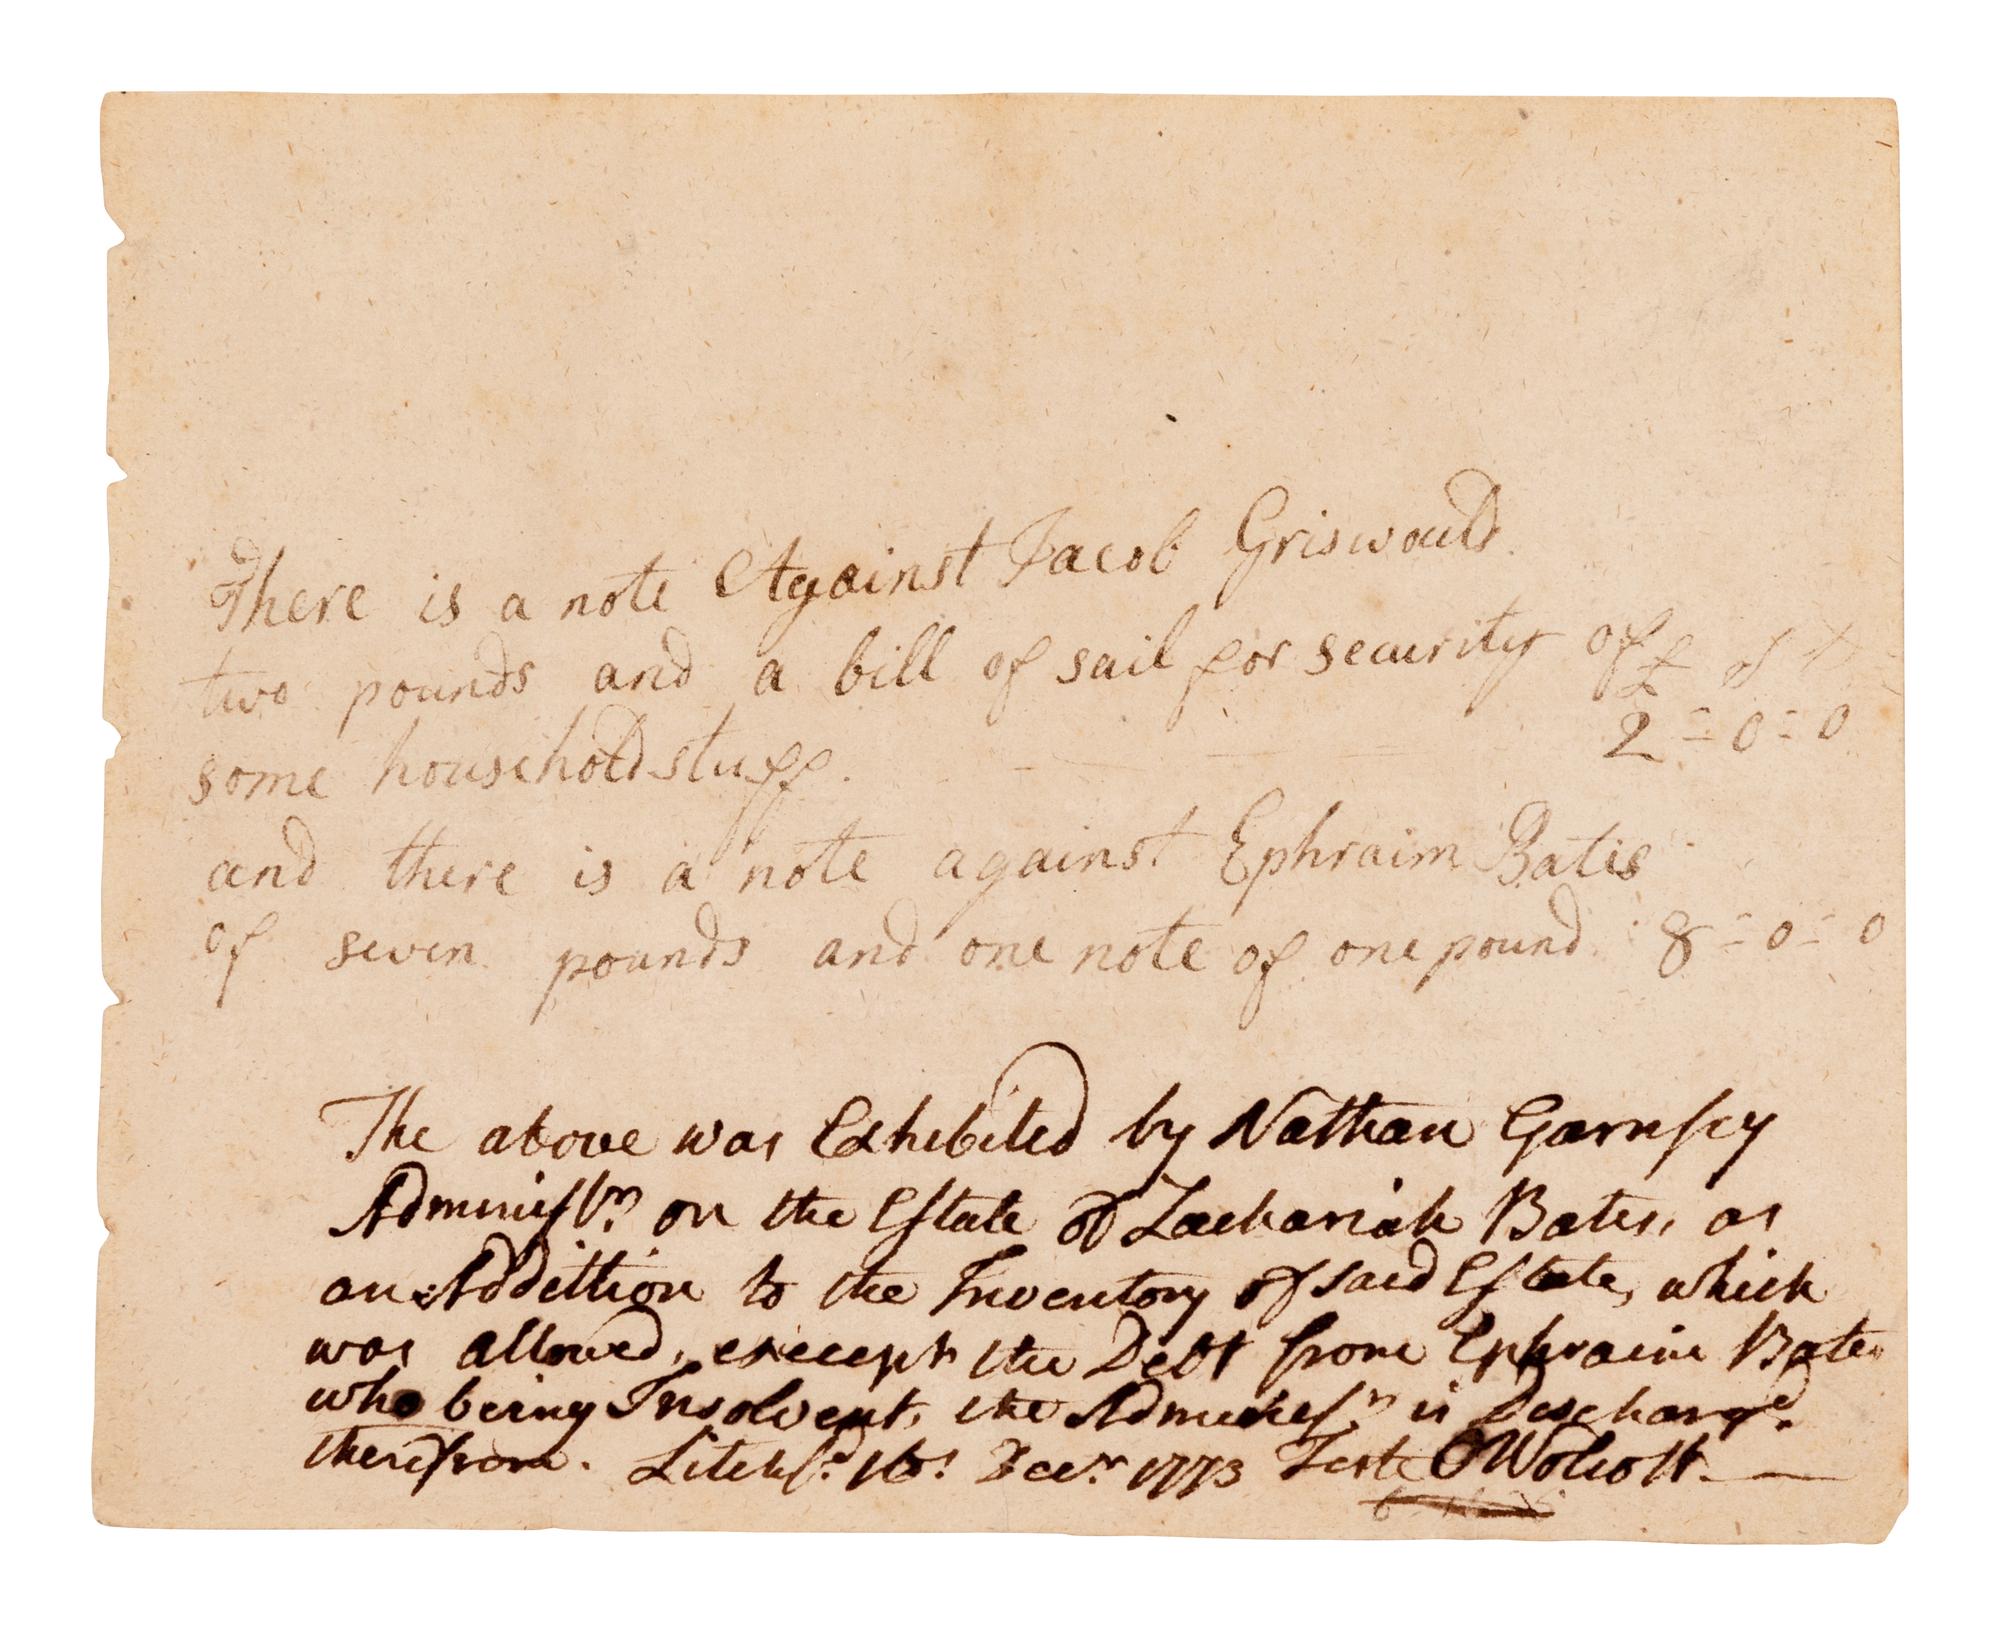 There is a note Against Jacob Griswould
two pounds and a bill of sail for security of
£ s d
some household stuff. 2=0=0
and there is a note against Ephraim Batis
of seven pounds and one note of one pound 8=0=0
The above was Exhibited by Nathan Garnsey
Administr. on the Estate of Zachariah Bates, as
an Addittion to the Inventory of said Estate, which
was allowed, except the Debt from Ephraim Bates
who being Insolvent, the Administr. is Discharged
therefrom. Litchfd. 16t. Decr. 1773 Test O Wolcott.